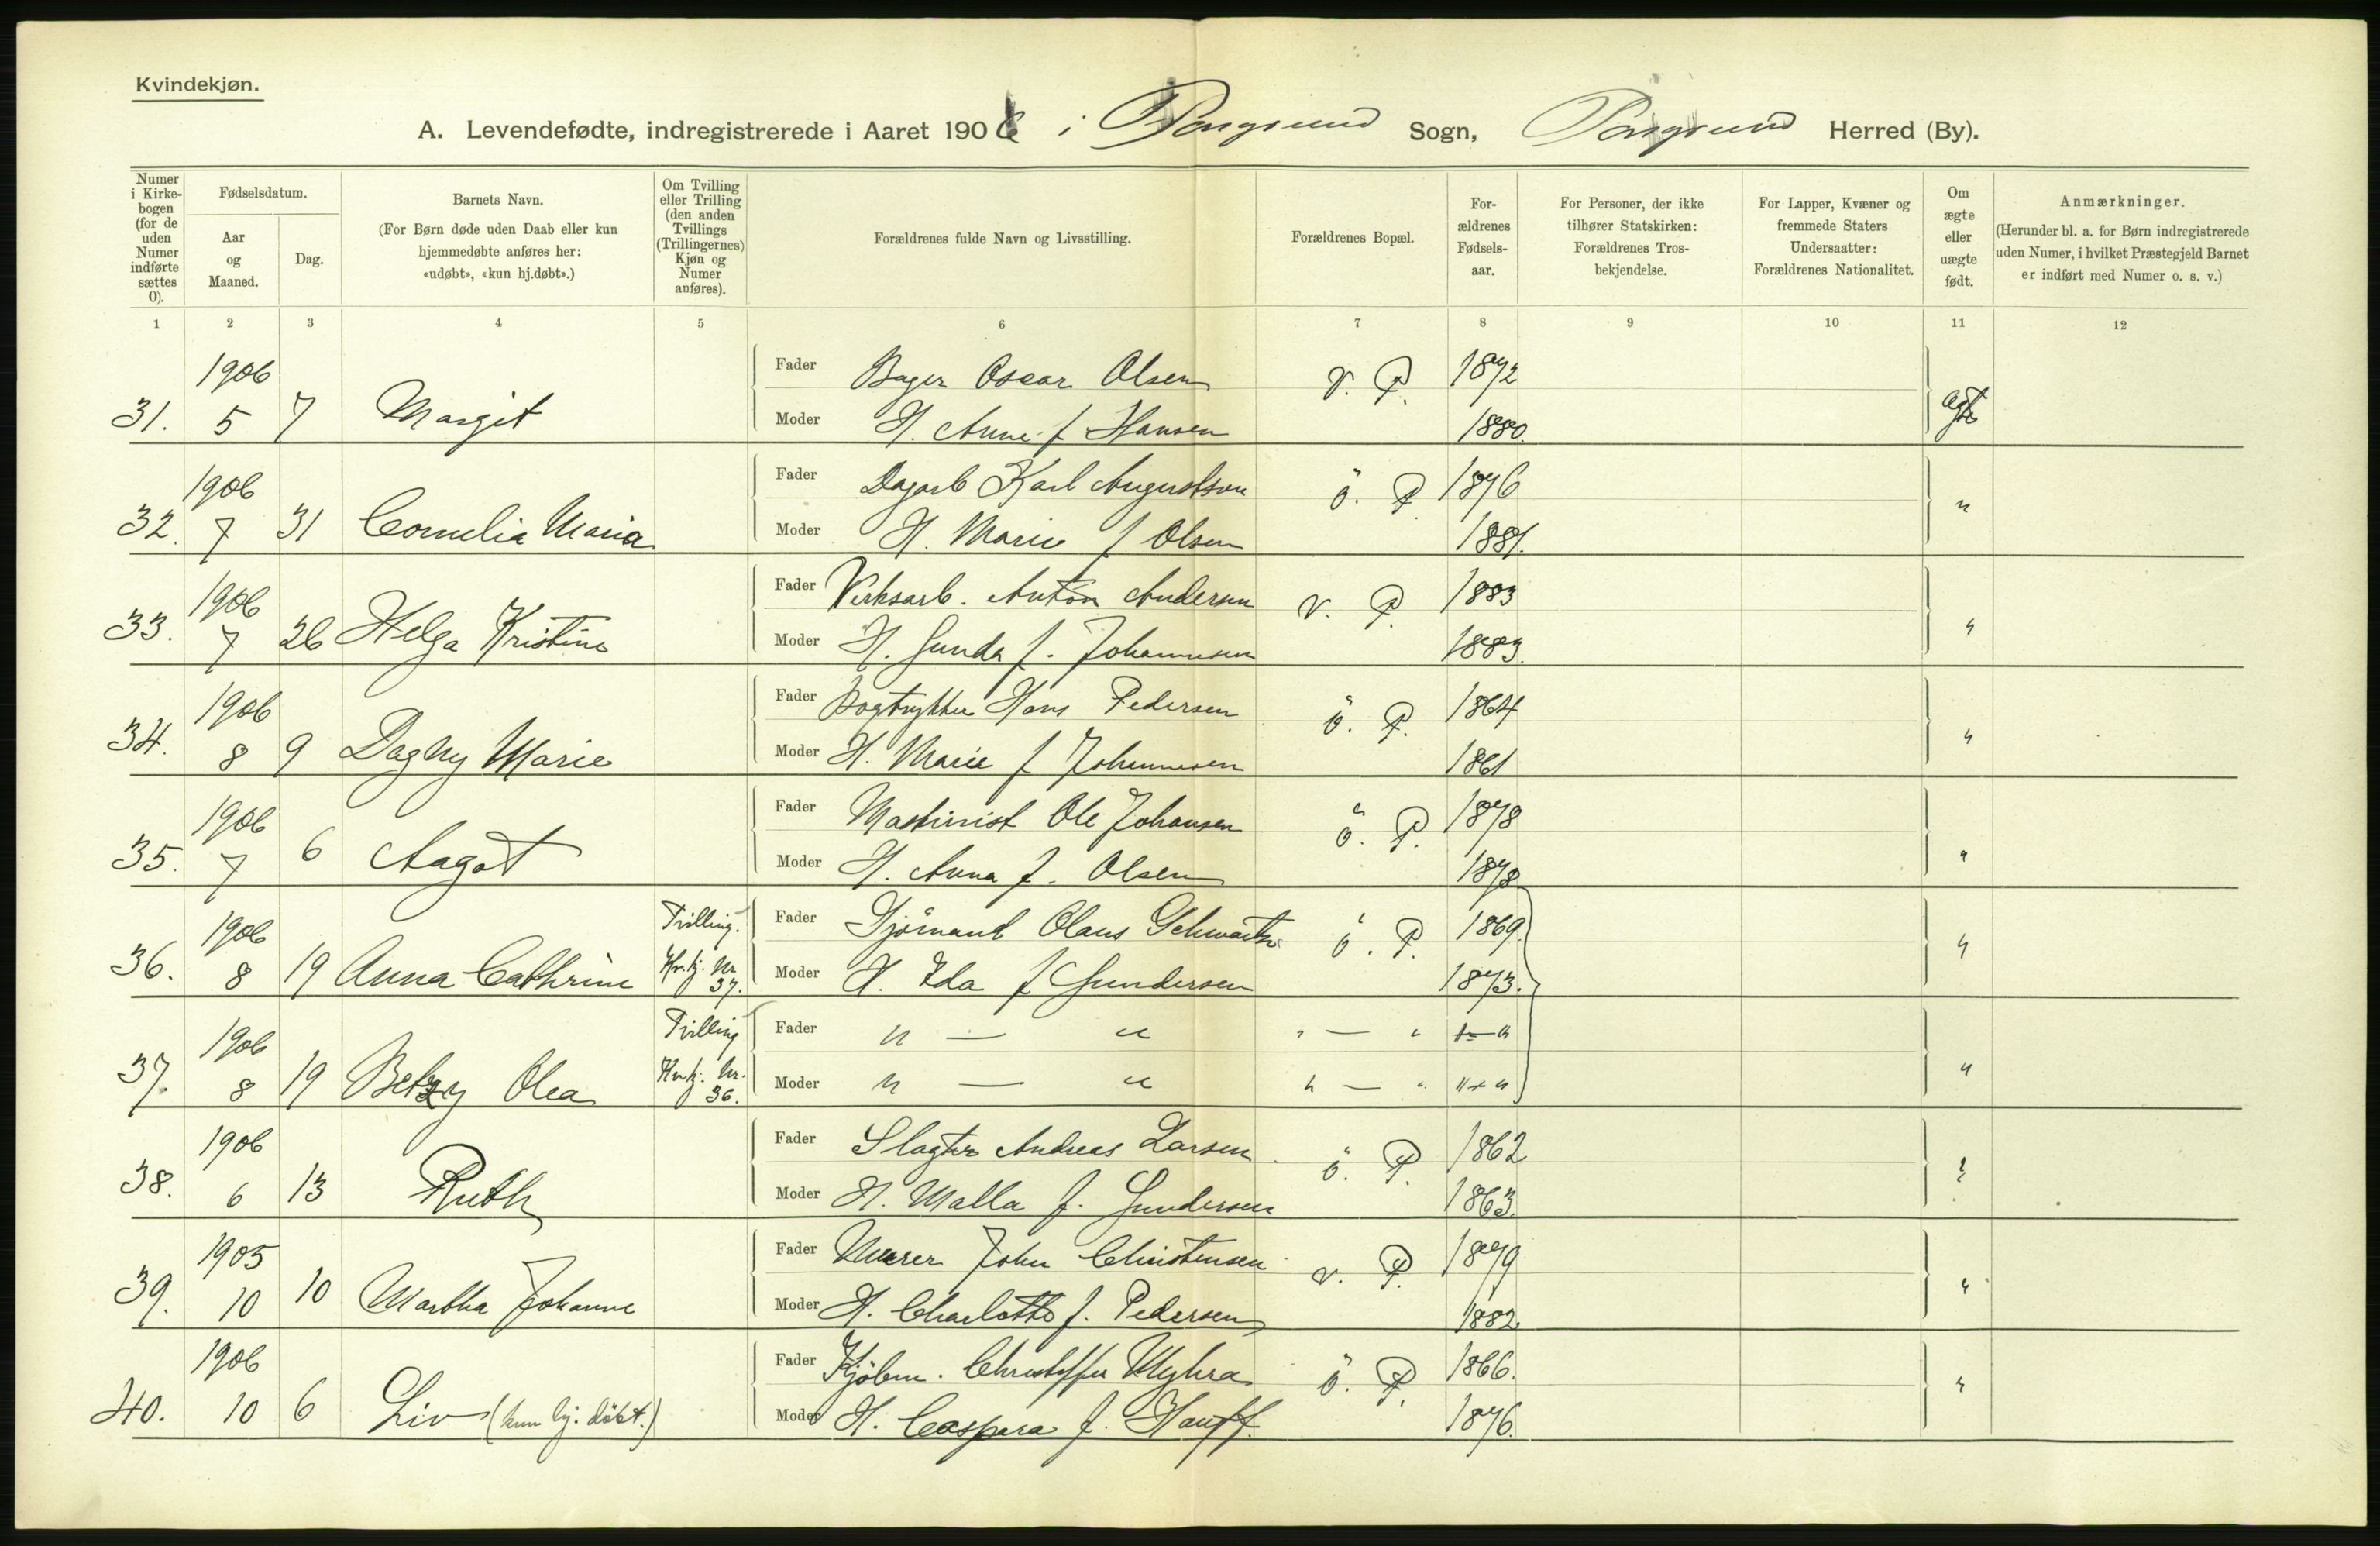 Kvindekjøn.
A. Levendefødte, indregistrerede i Aaret 1906 i Porsgrund Sogn, Porsgrund Herred (By).
Numer i Kirkebogen (for de uden Numer indførte sættes 0).
Fødselsdatum.
Aar og Maaned.
Dag.
Barnets Navn.
(For Børn døde uden Daab eller kun hjemmedøbte anføres her: «udøbt», «kun hj.døbt».)
Om Tvilling eller Trilling (den anden Tvillings (Trillingernes) Kjøn og Numer anføres).
Forældrenes fulde Navn og Livsstilling.
Forældrenes Bopæl.
For-ældrenes Fødsels-aar.
For Personer, der ikke tilhører Statskirken: Forældrenes Tros-bekjendelse.
For Lapper, Kvæner og fremmede Staters Undersaatter: Forældrenes Nationalitet.
Om ægte eller uægte født.
Anmærkninger.
(Herunder bl. a. for Børn indregistrerede uden Numer, i hvilket Præstegjeld Barnet er indført med Numer o. s. v.)
1 2 3 4 5 6 7 8 9 10 11 12
1906 Fader Bager Oscar Olsen V. P. 1872
31. 5 7 Margit Moder H. Anne f Hansen 1880. ægte
1906 Fader Dagarb Karl Augustson ö. P. 1876
32. 7 31 Cornelia Maria Moder H. Marie f Olsen 1881. "
1906 Fader Verksarb. Anton Andersen V. P. 1883
33. 7 26 Helga Kristine Moder H. Gunda f. Johannesen 1883. "
1906 Fader Bogtrykker Hans Pedersen ö. P. 1864
34. 8 9 Dagny Marie Moder H. Marie f Johannesen 1861 "
1906 Fader Maskinist Ole Johansen ö. P. 1878
35. 7 6 Aagot Moder H. Anna f. Olsen 1878 "
1906 Tvilling. Fader Sjömand Olaus Schwartz ö. P. 1869.
36. 8 19 Anna Cathrine Kv.kj. Nr. 37. Moder H. Ida f Gundersen 1873. "
1906 Tvilling Fader " — " " — " " — "
37. 8 19 Betzy Olea Kv.kj. Nr. 36. Moder " — " " — " " "
1906 Fader Slagter Andreas Larsen ö. P. 1862
38. 6 13 Ruth Moder H. Malla f. Gundersen 1863. "
1905 Fader Murer John Christensen V. P. 1879
39. 10 10 Martha Johanne Moder H. Charlotte f. Pedersen 1882. "
1906 Fader Kjöbm. Christoffer Myhra ö. P. 1866.
40. 10 6 Liv (kun hj. döbt.) Moder H. Caspara f. Hauff. 1876. "